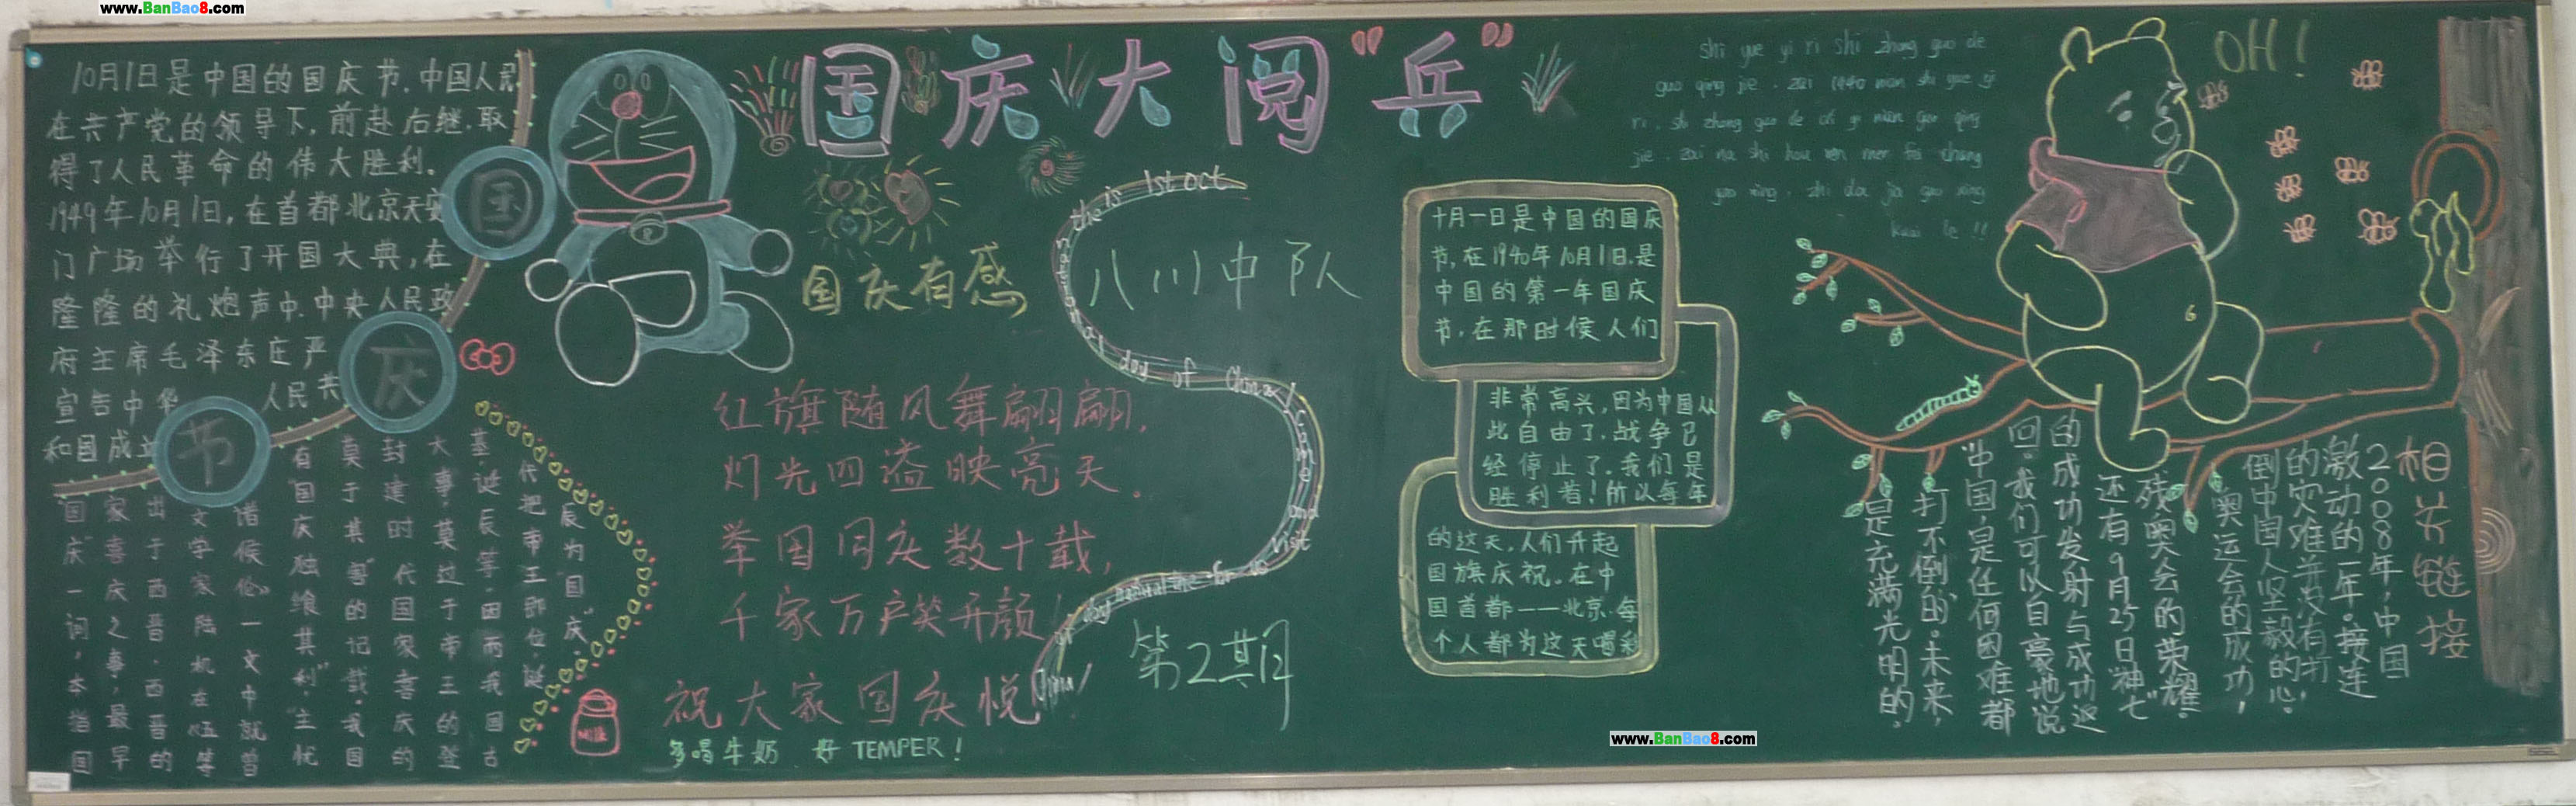 www.BanBao8.com
10月1日是中国的国庆节.中国人民
在共产党的领导下,前赴后继.取
得了人民革命的伟大胜利。
1949年10月1日,在首都北京天安
门广场举行了开国大典,在
隆隆的礼炮声中.中央人民政
府主席毛泽东庄严
宣告中华 人民共
和国成立
国
庆
节
"国庆"一词,本指国
家喜庆之事,最早
出于西晋.西晋的
文学家陆机在《五等
诸侯伦》一文中就曾
有"国庆独飨其利","主忧
莫于其害"的记载.我国
封建时代国家喜庆的
大事,莫过于帝王的登
基,诞辰等.因而我国古
代把帝王即位.诞
辰为"国庆"。
Milk
国庆大阅"兵"
国庆有感
红旗随风舞翩翩,
灯光四溢映亮天。
举国同庆数十载,
千家万户笑开颜!
祝大家国庆悦!
多喝牛奶 好TEMPER!
the is 1st oct
national day of China
八川中队
第2期
十月一日是中国的国庆
节,在1940年10月1日.是
中国的第一年国庆
节.在那时候人们
非常高兴,因为中国从
此自由了.战争已
经停止了.我们是
胜利者!所以每年
的这天,人们升起
国旗庆祝。在中
国首都——北京.每
个人都为这天喝彩
shi yue yi ri shi zhong guo de
guo qing jie . zai 1940 nian shi yue yi
ri . shi zhong guo de di yi nian guo qing
jie . zai na shi hou ren men fei chang
gao xing . zhu da jia guo qing
kuai le !!
OH!
相关链接
2008年,中国
激动的一年。接连
的灾难并没有打
倒中国人坚毅的心.
奥运会的成功,
残奥会的荣耀.
还有9月25日"神七"
的成功发射与成功返
回.我们可以自豪地说
"中国是任何困难都
打不倒的".未来,
是充满光明的.
www.BanBao8.com